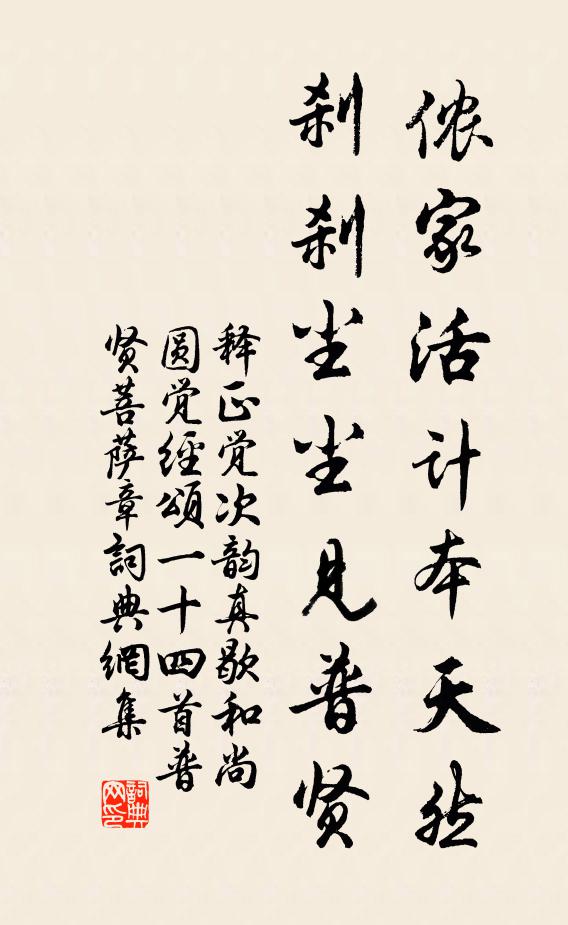 侬家活计本天然
刹刹尘尘见普贤
释正觉次韵真歇和尚
圆觉经颂一十四首普
贤菩萨章詞典網集
詞典
网印